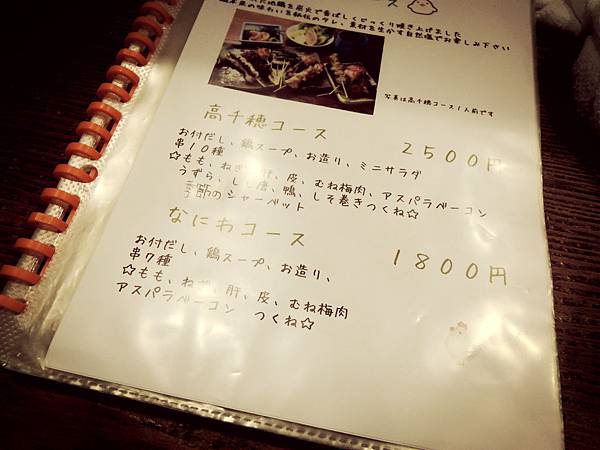 地鶏を炭火で香ばしくじっくり焼き上げました
の味わいを秘伝のタレ、素材を生かす自然塩でお楽しみ下さい
写真は高千穂コース1人前です
高千穂コース 2500円
お付だし、鶏スープ、お造り、ミニサラダ
串10種
☆もも、ねぎ、肝、皮、むね梅肉、アスパラベーコン
うずら、しし唐、鴨、しそ巻きつくね☆
季節のシャーベット
なにわコース 1800円
お付だし、鶏スープ、お造り、
串7種
☆もも、ねぎ、肝、皮、むね梅肉
アスパラベーコン つくね☆